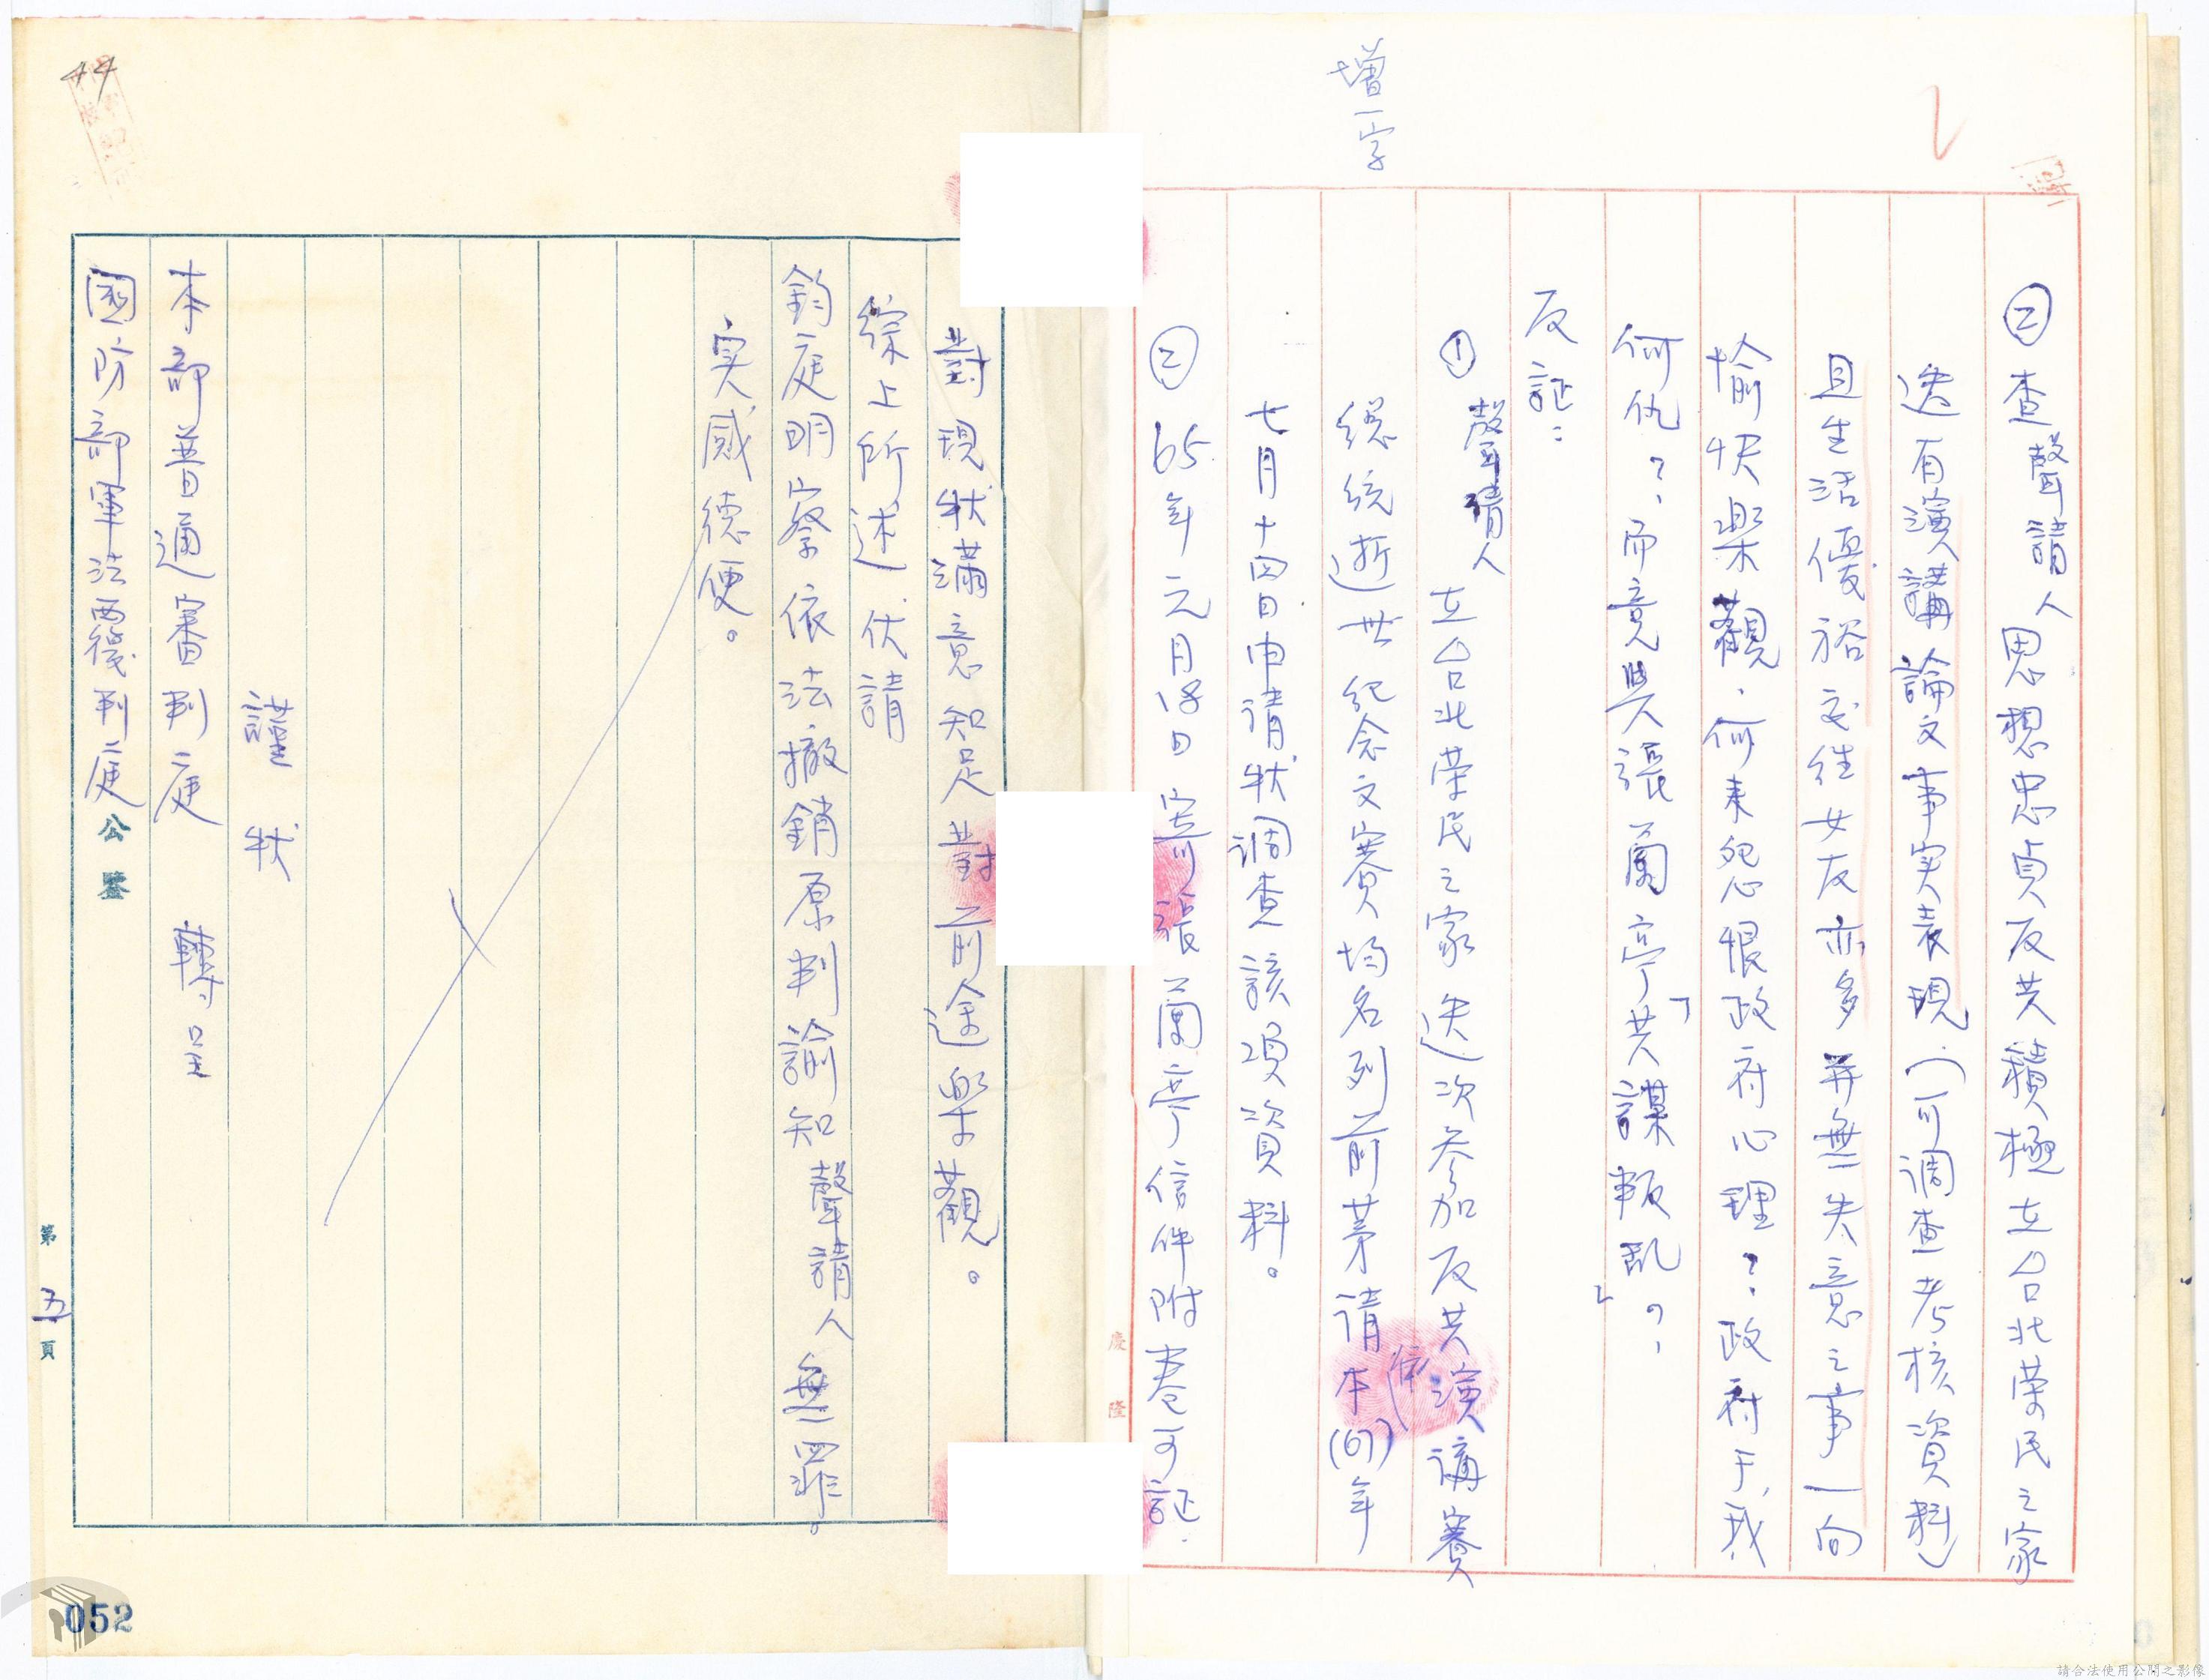 增一字
②查聲請人思想忠貞反共積極在台北荣民之家
迭有演講論文事实表現(可調查考核資料)
且生活優裕交往女友亦多並無失意之事一向
愉快楽觀.何来怨恨政府心理?.政府于我
何仇?.而竟與張蘭亭「共謀叛乱」?.
反証:
①聲請人在台北荣民之家迭次参加反共演講賽
總統逝世紀念文賽均名列前茅请本(67)年
七月十四日申请狀调查該項資料。
②65年元月18日寄張蘭亭信件附卷可証.
對現狀滿意知足對前途楽觀。
綜上所述伏請
鈞庭明察依法撤銷原判諭知聲請人無罪。
实感德便。
謹狀
本部普通審判庭 轉呈
國防部軍法覆判庭 公鑒
第五頁
慶隆
44
052
請合法使用公開之影像